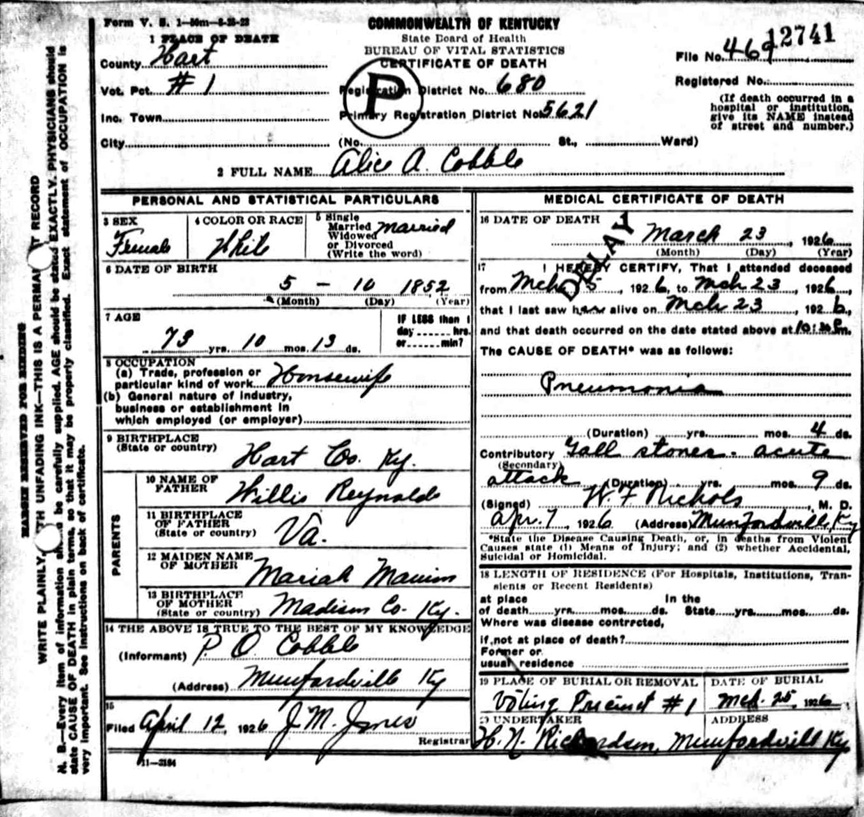 Form V. S. 1-50m-6-25-23
COMMONWEALTH OF KENTUCKY
State Board of Health
BUREAU OF VITAL STATISTICS
CERTIFICATE OF DEATH
12741
File No. 469
Registered No.
(If death occurred in a hospital or institution, give its NAME instead of street and number.)
1 PLACE OF DEATH
County Hart
Vot. Pct. #1
Inc. Town
City
Registration District No. 680
Primary Registration District No. 5621
P
(No. St., Ward)
2 FULL NAME Alice A. Cobble
PERSONAL AND STATISTICAL PARTICULARS
3 SEX
Female
4 COLOR OR RACE
White
5 Single
Married
Widowed
or Divorced
(Write the word)
Married
6 DATE OF BIRTH
5 - 10 1852
(Month) (Day) (Year)
7 AGE
73 yrs. 10 mos. 13 ds.
IF LESS than 1
day hrs.
or min?
8 OCCUPATION
(a) Trade, profession or
particular kind of work Housewife
(b) General nature of industry,
business or establishment in
which employed (or employer)
9 BIRTHPLACE
(State or country)
Hart Co. Ky.
PARENTS
10 NAME OF
FATHER
Willis Reynolds
11 BIRTHPLACE
OF FATHER
(State or country)
Va.
12 MAIDEN NAME
OF MOTHER
Mariah
13 BIRTHPLACE
OF MOTHER
(State or country)
Madison Co. Ky.
14 THE ABOVE IS TRUE TO THE BEST OF MY KNOWLEDGE
(Informant) P. O. Cobble
(Address) Munfordville Ky
15
Filed April 12, 1926 J. M. Jones
Registrar
11-3184
MEDICAL CERTIFICATE OF DEATH
16 DATE OF DEATH
March 23, 1926
(Month) (Day) (Year)
DELAY
17 I HEREBY CERTIFY, That I attended deceased
from Mch 5, 1926, to Mch 23, 1926
that I last saw her alive on Mch 23, 1926,
and that death occurred on the date stated above at m.
The CAUSE OF DEATH* was as follows:
Pneumonia
(Duration) yrs. mos. 4 ds.
Contributory Gall stones. acute
(Secondary)
attack (Duration) yrs. mos. 9 ds.
(Signed) W. F. Nichols, M. D.
Apr. 7, 1926 (Address) Munfordville, Ky
*State the Disease Causing Death, or, in deaths from Violent
Causes state (1) Means of Injury; and (2) whether Accidental,
Suicidal or Homicidal.
18 LENGTH OF RESIDENCE (For Hospitals, Institutions, Tran-
sients or Recent Residents)
at place In the
of death yrs. mos. ds. State yrs. mos. ds.
Where was disease contrcted,
if not at place of death?
Former or
usual residence
19 PLACE OF BURIAL OR REMOVAL
Voting Precinct #1
DATE OF BURIAL
Mch. 25, 1926
20 UNDERTAKER
H. N. Richardson,
ADDRESS
Munfordvill Ky
MARGIN RESERVED FOR BINDING
WRITE PLAINLY, WITH UNFADING INK—THIS IS A PERMANENT RECORD
N. B.—Every item of information should be carefully supplied. AGE should be stated EXACTLY. PHYSICIANS should
state CAUSE OF DEATH in plain terms, so that it may be properly classified. Exact statement of OCCUPATION is
very important. See instructions on back of certificate.